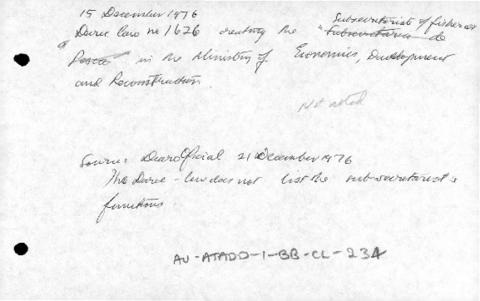 15 December 1976
Decree law no 1626 creating the "Subsecretariat of fisheries
"Subsecretaria de
Pesca" in the Ministry of Economics, Development
and Reconstruction.
Not noted
Source: Diario Oficial 21 December 1976
This Decree-law does not list the subsecretariat's
functions
AU-ATADD-1-BB-CL-234